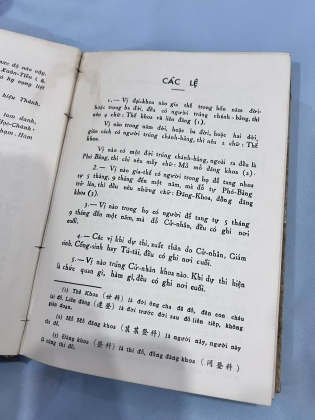 ức độ nào vậy.
Xuân-Tiếu (
có hy vọng tiết
hiệu Thành,
tom danh,
Học-Chánh
hạm Hàm
CÁC LỆ
1.— Vị đại-khoa nào gia thế trong bốn năm đời
hoặc trong ba đời, đều có người trúng chánh-bảng, thì
nêu 4 chữ : Thế khoa và liên đăng (1).
Vị nào trong năm đời, hoặc ba đời, hoặc hai đời,
gián cách có người trúng chánh-bảng, thì nêu 2 chữ : Thế
khoa.
Vị nào có một đời trúng chánh-bảng, ngoài ra đều là
Phó-Bảng, thì chỉ nêu mấy chữ: Mỗ mỗ đăng khoa (2).
2.— Vị nào gia-thế có người trong họ để tang nhau
tự 5 tháng, 9 tháng đến một năm, mà đỗ tự Phó-Bảng
trở lên, thì đều nêu những chữ: Đăng-Khoa, đồng đăng
khoa (3).
3.— Vị nào trong họ có người để tang tự 5 tháng
9 tháng đến một năm, mà đỗ Cử-nhân, đều có ghi nơi
cuối.
4.— Các vị khi dự thi, xuất thân do Cử-nhân, Giám
sinh, Cống-sinh hay Tú-tài, đều có ghi nơi cuối.
5.— Vị nào trúng Cử-nhân khoa nào. Khi dự thi hiện
là chức quan gì, hàm gì, đều có ghi nơi cuối.
(1) Thế Khoa (世科) là đời ông cha đã đỗ, đến con cháu
lại đỗ. Liên đăng (連登) là đời trước đời sau đỗ liên tiếp, không
gián đoạn.
(2) Mỗ Mỗ đăng khoa (某某登科) là người này, người nay
thi đỗ.
(3) Đăng khoa (登科) là thi đỗ, đồng đăng khoa (同登科)
là cùng thi đỗ.